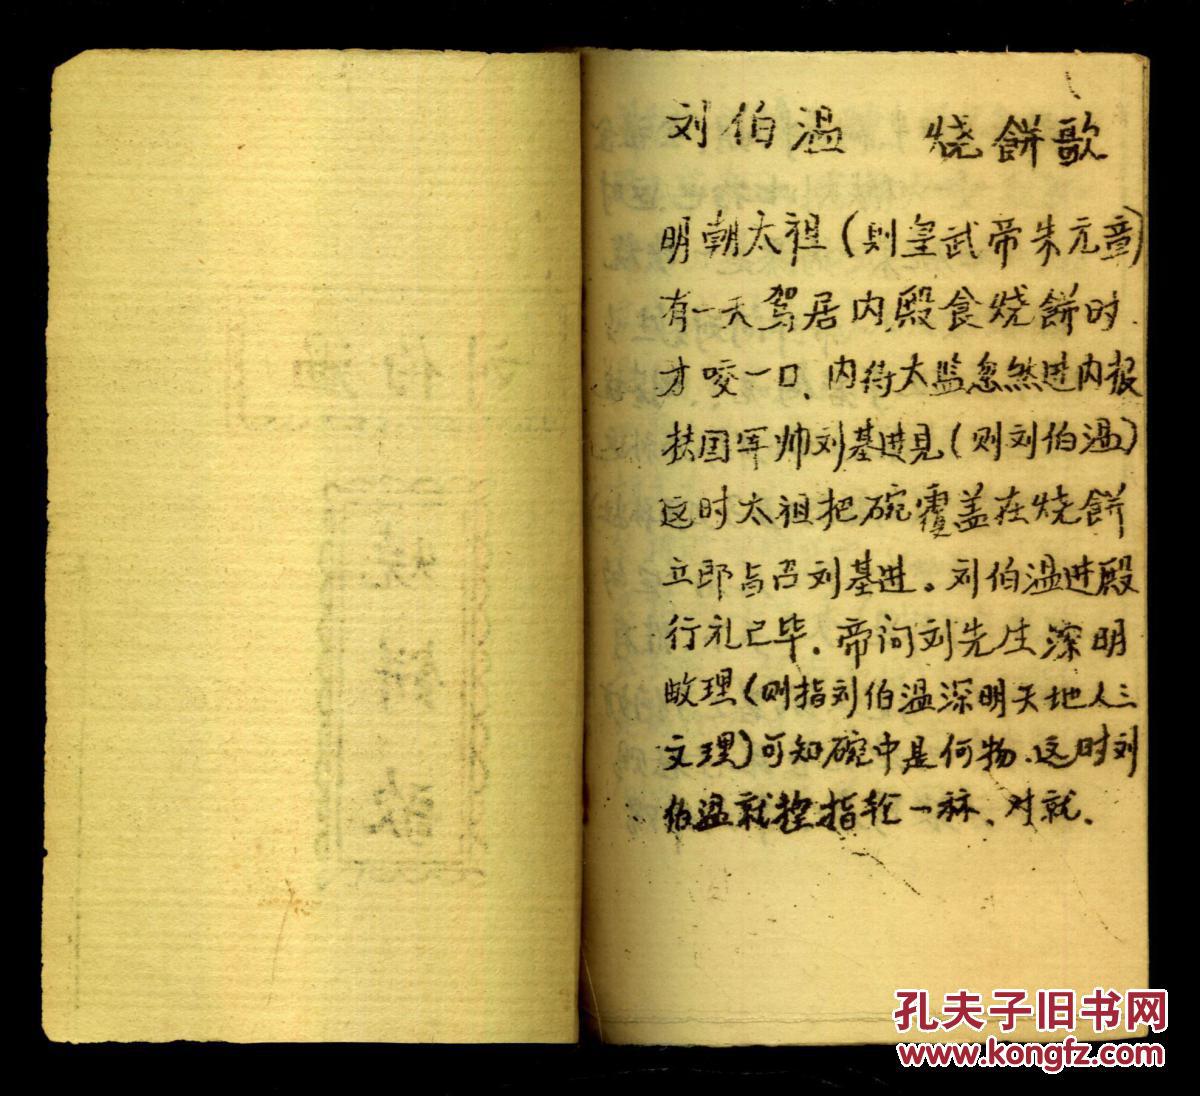 刘伯温 烧餅歌
明朝太祖(则皇武帝朱元章)
有一天驾居内殿食烧餅时
才咬一口、内待太监忽然进内报
扶国军帅刘基进見(则刘伯温)
这时太祖把碗覆盖在烧餅
立即与召刘基进。刘伯温进殿
行礼已毕。帝问刘先生深明
数理(则指刘伯温深明天地人三
文理)可知碗中是何物、这时刘
伯温就控指轮一秝、对就、
刘伯温
烧
餅
歌
孔夫子旧书网
www.kongfz.com